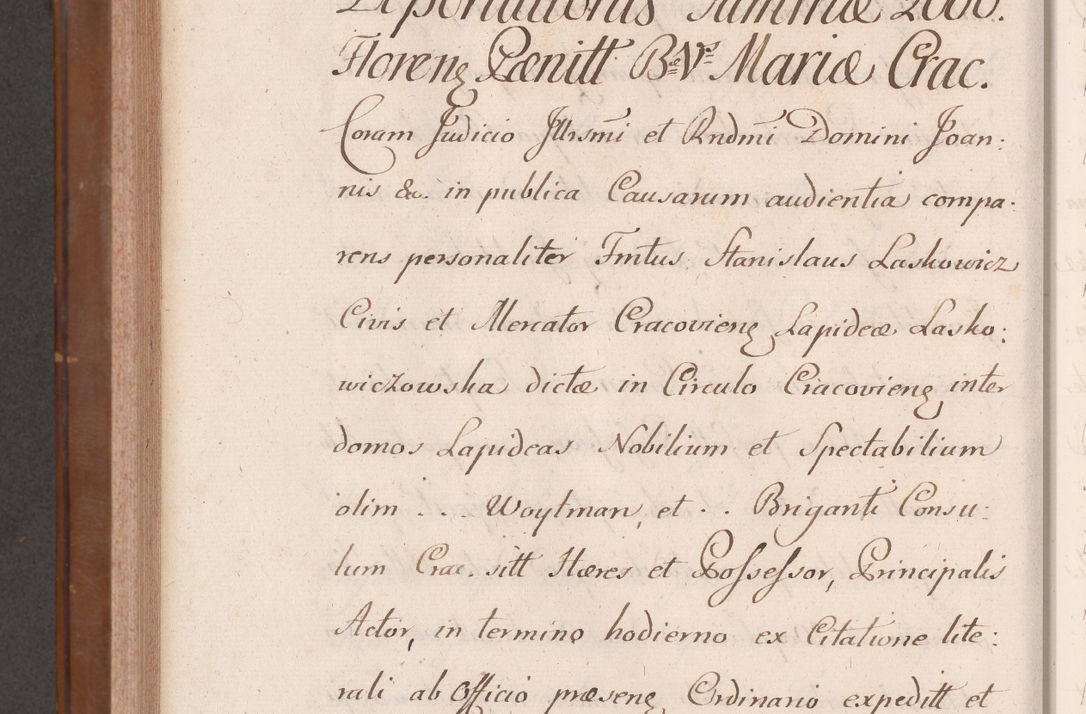 Depositationis Summæ 2000.
Floreng Pœnitt Bæ Vs Mariæ Crac.
Coram Judicio Jllrsmi et Rndmi Domini Joan:
nis &c. in publica Causarum audientia compa:
rens personaliter Fmtus. Stanislaus Laskowicz
Civis et Mercator Cracovieng Lapideæ Lasko:
wiczowska dictæ in Circulo Cracovieng inter
domos Lapideas Nobilium et Spectabilium
olim . . . Woytman, et . . Briganti Consu:
lum Crac. sitt Hæres et Possessor, Principalis
Actor, in termino hodierno ex Citatione lite:
rali ab Officio præseng Ordinario expeditt et